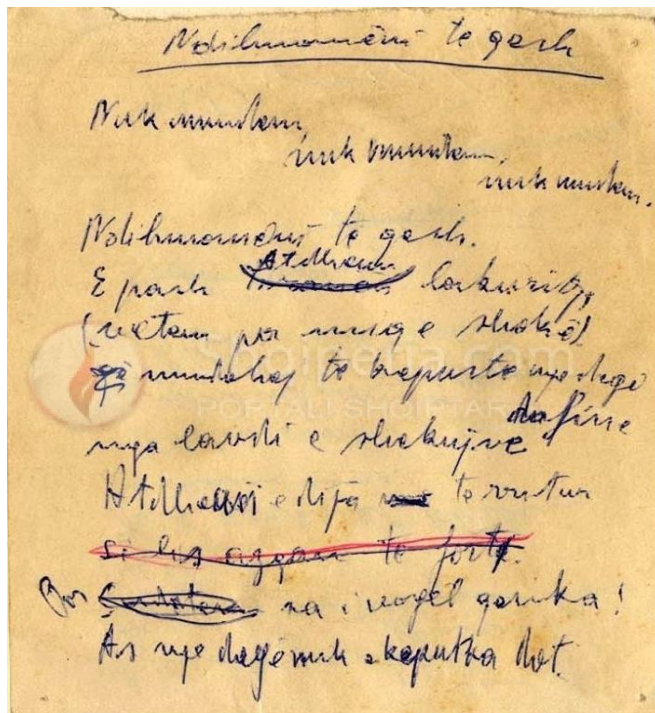 Ndihmomëni te qesh
Nuk mundem,
nuk mundem,
nuk mundem.
Ndihmomëni të qesh.
E pash Atdheun lakuriq,
(vetem pa miq e shokë)
që mundohej të kepuste nje degë
dafine
nga lavdi e shekujve
Atdheun e dija te rritur
si lis te fortë.
Por sa i vogel qenka!
As nje degë nuk e keputka dot.
Shqiperia.com
PORTALI SHQIPTAR